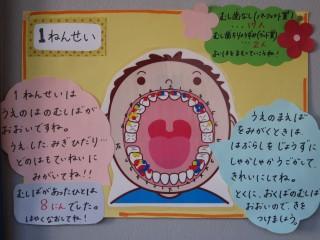 むし歯なし(パーフェクト賞)
・・・17人
・・・2人
おいはをまもっていこうね!
1ねんせい
1ねんせいは
うえのはのむしばが
おおいですね。
うえ、した、みぎ、ひだり…
どのはもていねいに
みがいてね!!
むしばがあったひとは、
8にんでした。
はやくなおしてね!
うえのまえば
をみがくときは、
はぶらしをじょうずに
しゃかしゃかうごかして、
きれいにしてね。
とくに、おくばのむしば
がおおいので、きを
つけましょう。